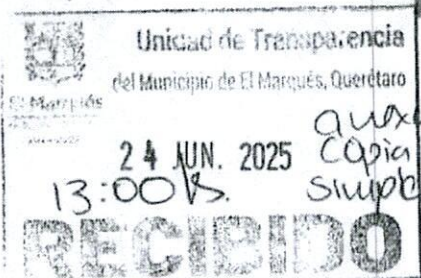 Unidad de Transparencia
del Municipio de El Marqués, Querétaro
El Marqués
anexo
24 JUN. 2025 Copia
13:00 hs. simple
RECIBIDO